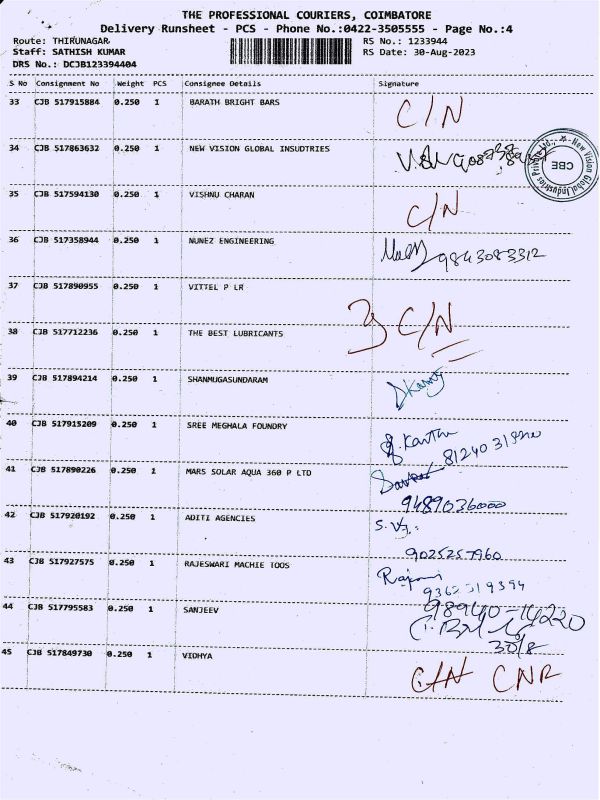 THE PROFESSIONAL COURIERS, COIMBATORE
Delivery Runsheet - PCS - Phone No.:0422-3505555 - Page No.:4
Route: THIRUNAGAR
Staff: SATHISH KUMAR
DRS No.: DCJB123394404
RS No.: 1233944
RS Date: 30-Aug-2023
S No Consignment No Weight PCS Consignee Details Signature
33 CJB 517915884 0.250 1 BARATH BRIGHT BARS C/N
34 CJB 517863632 0.250 1 NEW VISION GLOBAL INSUDTRIES
New Vision Global Industries Private Ltd., CBE
35 CJB 517594130 0.250 1 VISHNU CHARAN C/N
36 CJB 517358944 0.250 1 NUNEZ ENGINEERING 9843083312
37 CJB 517890955 0.250 1 VITTEL P LR
38 CJB 517712236 0.250 1 THE BEST LUBRICANTS C/N
39 CJB 517894214 0.250 1 SHANMUGASUNDARAM
40 CJB 517915209 0.250 1 SREE MEGHALA FOUNDRY
41 CJB 517890226 0.250 1 MARS SOLAR AQUA 360 P LTD
9489036000
42 CJB 517920192 0.250 1 ADITI AGENCIES
9025257960
43 CJB 517927575 0.250 1 RAJESWARI MACHIE TOOS
44 CJB 517795583 0.250 1 SANJEEV 98940-14220
30/8
45 CJB 517849730 0.250 1 VIDHYA C/N CNR